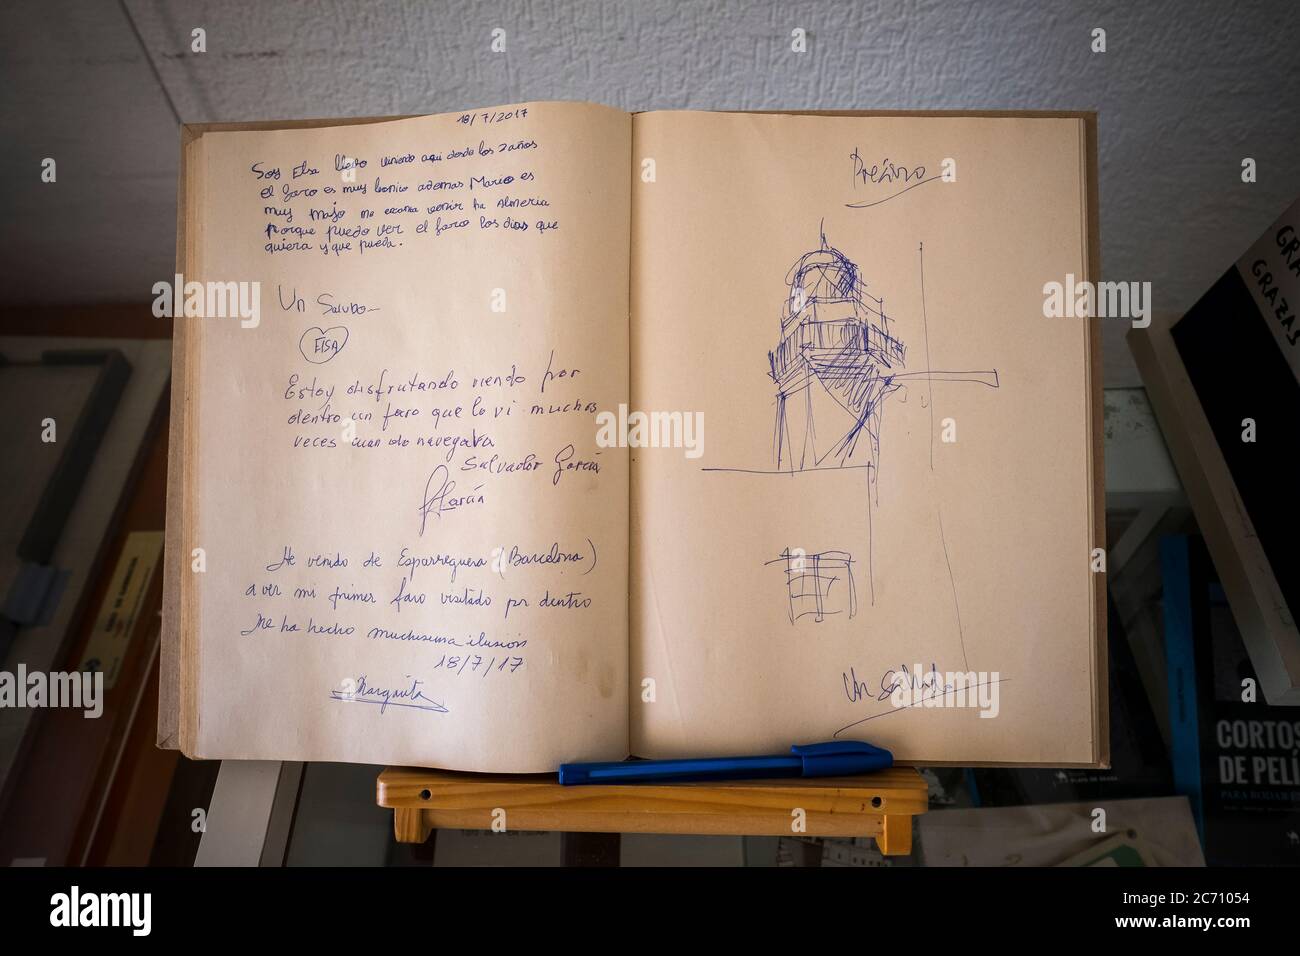 18/7/2017
Soy Elsa llevo viniendo aqui desde los 2 años
el faro es muy bonico ademas Mario es
muy majo me encanta venir ha Almeria
porque puedo ver el faro los dias que
quiera y que pueda.
Un Saludo
ELSA
Estoy disfrutando viendo por
dentro un faro que lo vi muchas
veces cuando navegava
Salvador García
García
He venido de Esparreguera (Barcelona)
a ver mi primer faro visitado por dentro
Me ha hecho muchisima ilusión
18/7/17
Margarita
Precioso
Un saludo
GRA
GRAZAS
CORTOS
DE PELÍ
PARA RODAR E
alamy
Image ID: 2C71054
www.alamy.com